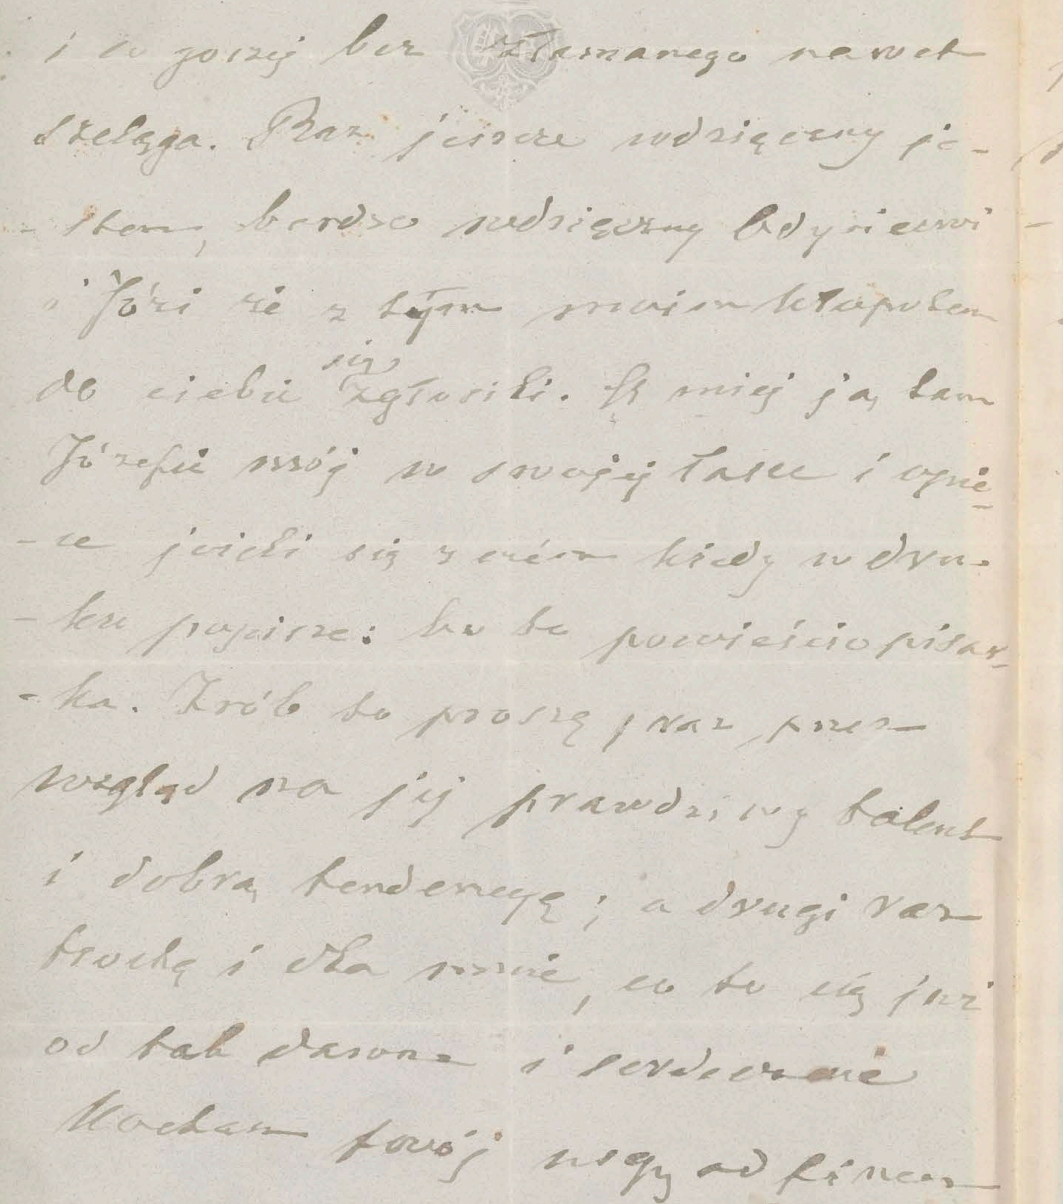 i co gorzej bez złamanego nawet
szeląga. Raz jeszcze wdzięczny je-
- stem, bardzo wdzięczny Edysiewi
i Józi że z tym swoim kłopotem
do ciebie się zgłosili. A miej ją tam
Józefie mój w swojej łasce i opie-
- ce jeżeli się z czém kiedy w dru-
- ku popisze: bo to powieściopisar-
- ka. Zrób to proszę, raz przez
wzgląd na jej prawdziwy talent
i dobrą tendencyę; a drugi raz
trochę i dla mnie, co to cię już
od tak dawna i serdecznie
kocham twój